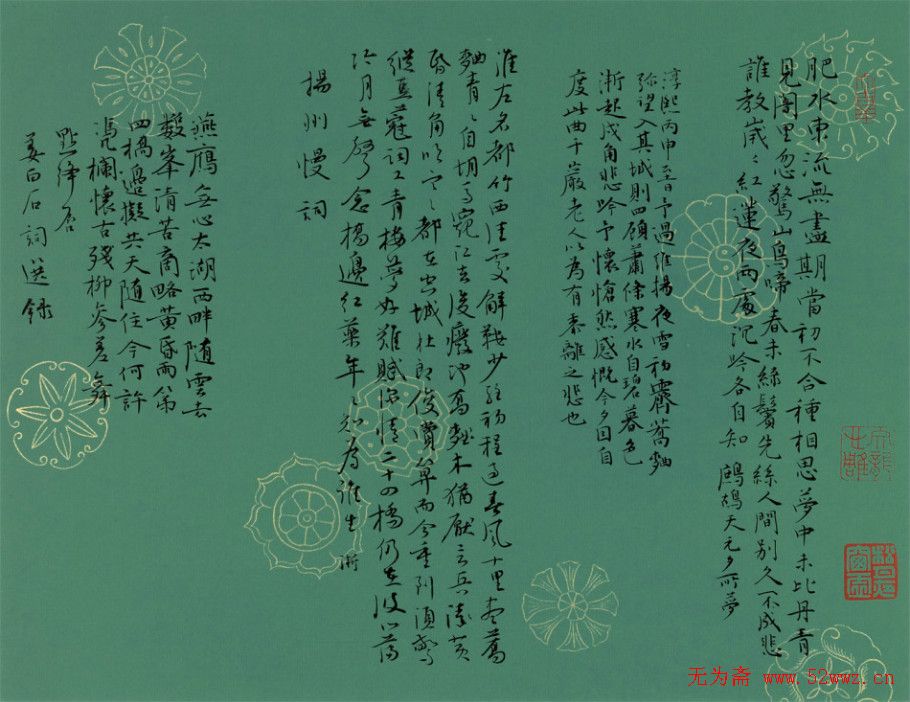 肥水東流無盡期當初不合種相思夢中未比丹青
見闇里忽驚山鳥啼 春未綠鬢先絲人間別久不成悲
誰教歲〻紅蓮夜兩處沉吟各自知 鷓鴣天元夕所夢
淳熙丙申至日予過維揚夜雪初霽薺麥
弥望入其城則四顧蕭條寒水自碧暮色
漸起戍角悲吟予懷愴然感慨今夕因自
度此曲千巖老人以為有黍離之悲也
淮左名都竹西佳處解鞍少駐初程過春風十里盡薺
麥青〻自胡馬窺江去後廢池喬木猶厭言兵漸黃
昏清角吹寒〻都在空城杜郎俊賞算而今重到須驚
縱豆蔻詞工青樓夢好難賦深情二十四橋仍在波心蕩
冷月無聲念橋邊紅藥年〻知為誰生 漸
揚州慢詞
燕雁無心太湖西畔隨雲去
數峯清苦商略黃昏雨第
四橋邊擬共天隨住今何許
凭欄懷古殘柳參差舞
點絳唇
姜白石詞選錄
无为斋 www.52wwz.cn